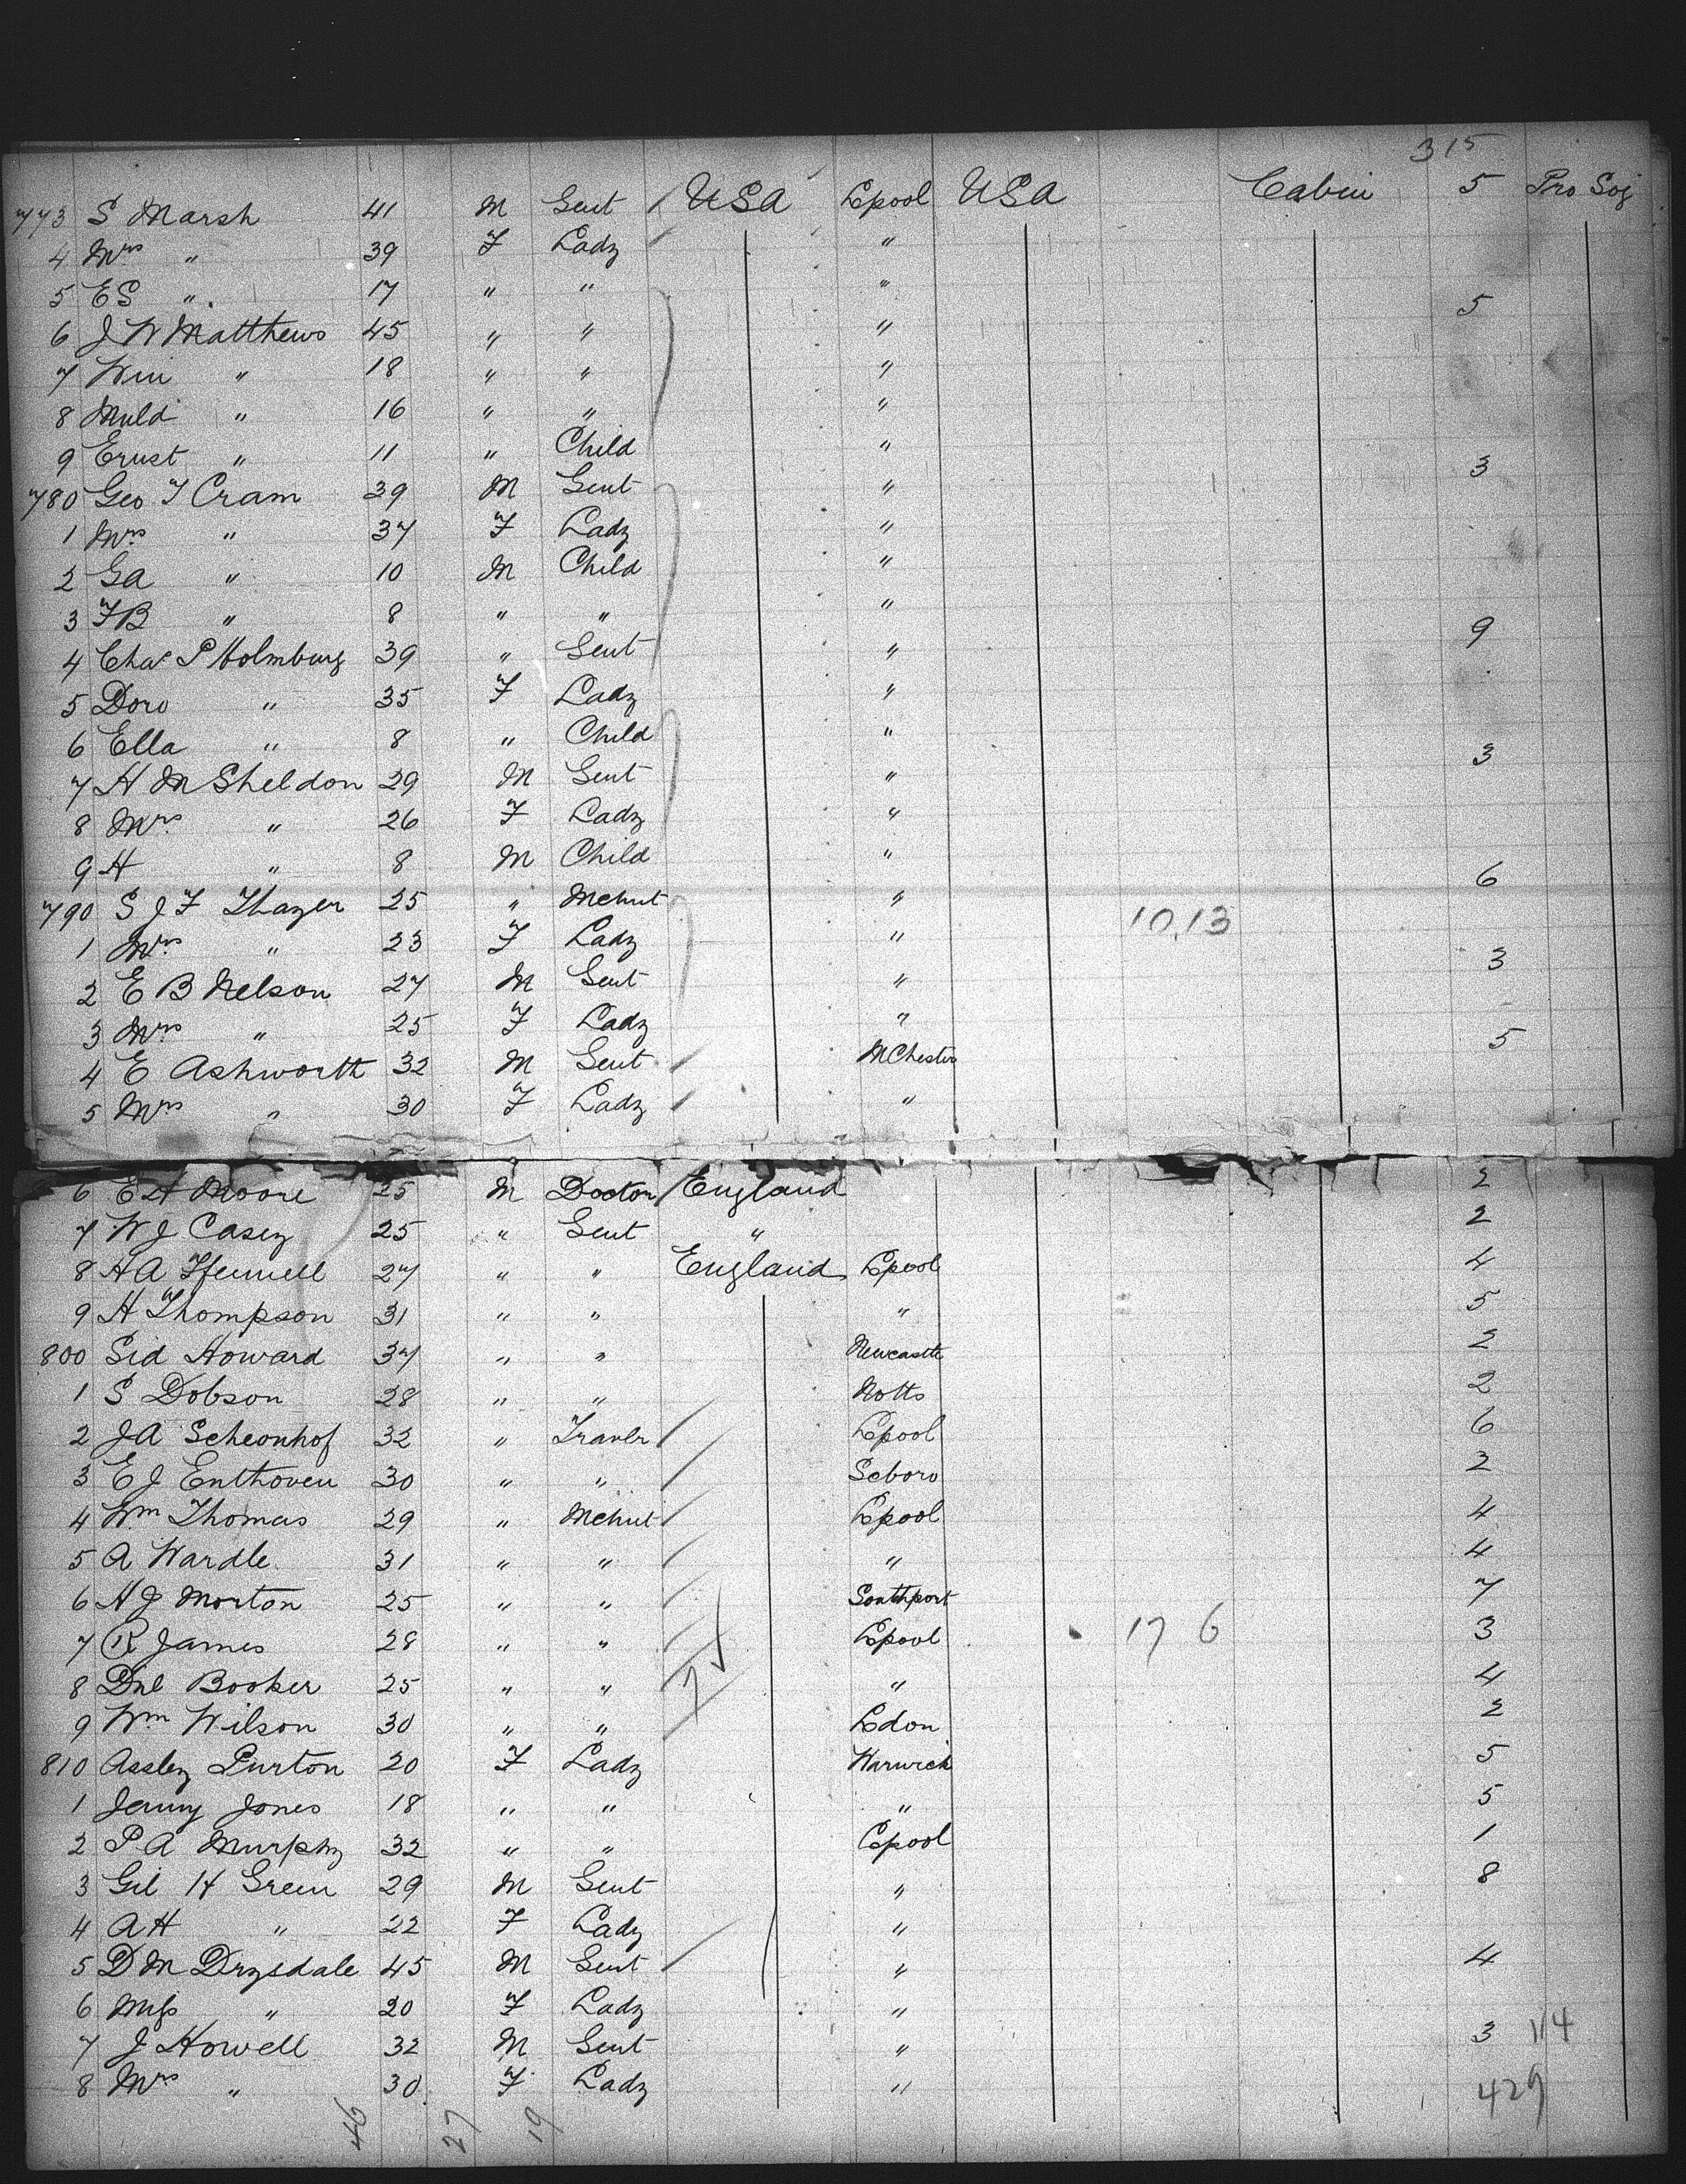 315
773 S Marsh 41 M Gent USA Lpool USA Cabin 5 Pro Soj
4 Mrs " 39 F Lady "
5 ES " 17 " " "
6 J W Matthews 45 " " " 5
7 Win " 18 " " "
8 " 16 " " "
9 Ernst " 11 " Child "
780 Geo F Cram 39 M Gent " 3
1 Mrs " 37 F Lady "
2 GA " 10 M Child "
3 FB " 8 " " "
4 Chas P Holmburg 39 " Gent " 9
5 Doro " 35 F Lady "
6 Ella " 8 " Child "
7 H M Sheldon 29 M Gent " 3
8 Mrs " 26 F Lady "
9 H " 8 M Child "
790 S J F Thayer 25 " Mchnt " 10,13 6
1 Mrs " 23 F Lady "
2 E B Nelson 27 M Gent " 3
3 Mrs " 25 F Lady "
4 E Ashworth 32 M Gent MChester 5
5 Mrs " 30 F Lady "
6 E H Moore 25 M Doctor England 2
7 W J Casey 25 " Gent " 2
8 H A 27 " " England Lpool 4
9 H Thompson 31 " " " 5
800 Sid Howard 37 " " Newcastle 2
1 S Dobson 28 " " Notts 2
2 JA Scheonhof 32 " Travlr Lpool 6
3 E J Enthoven 30 " " Scboro 2
4 Wm Thomas 29 " Mchnt Lpool 4
5 A Wardle 31 " " " 4
6 H J Morton 25 " " Southport 7
7 R James 28 " " Lpool 17 6 3
8 Dnl Booker 25 " " " 4
9 Wm Wilson 30 " " Ldon 2
810 Assley Purton 20 F Lady Warwick 5
1 Jenny Jones 18 " " " 5
2 P A Murphy 32 " " Lpool 1
3 Gil H Green 29 M Gent " 8
4 A H " 22 F Lady "
5 D M Drysdale 45 M Gent " 4
6 Miss " 20 F Lady "
7 J Howell 32 M Gent " 3 114
8 Mrs " 30 F Lady " 429
46 27 19